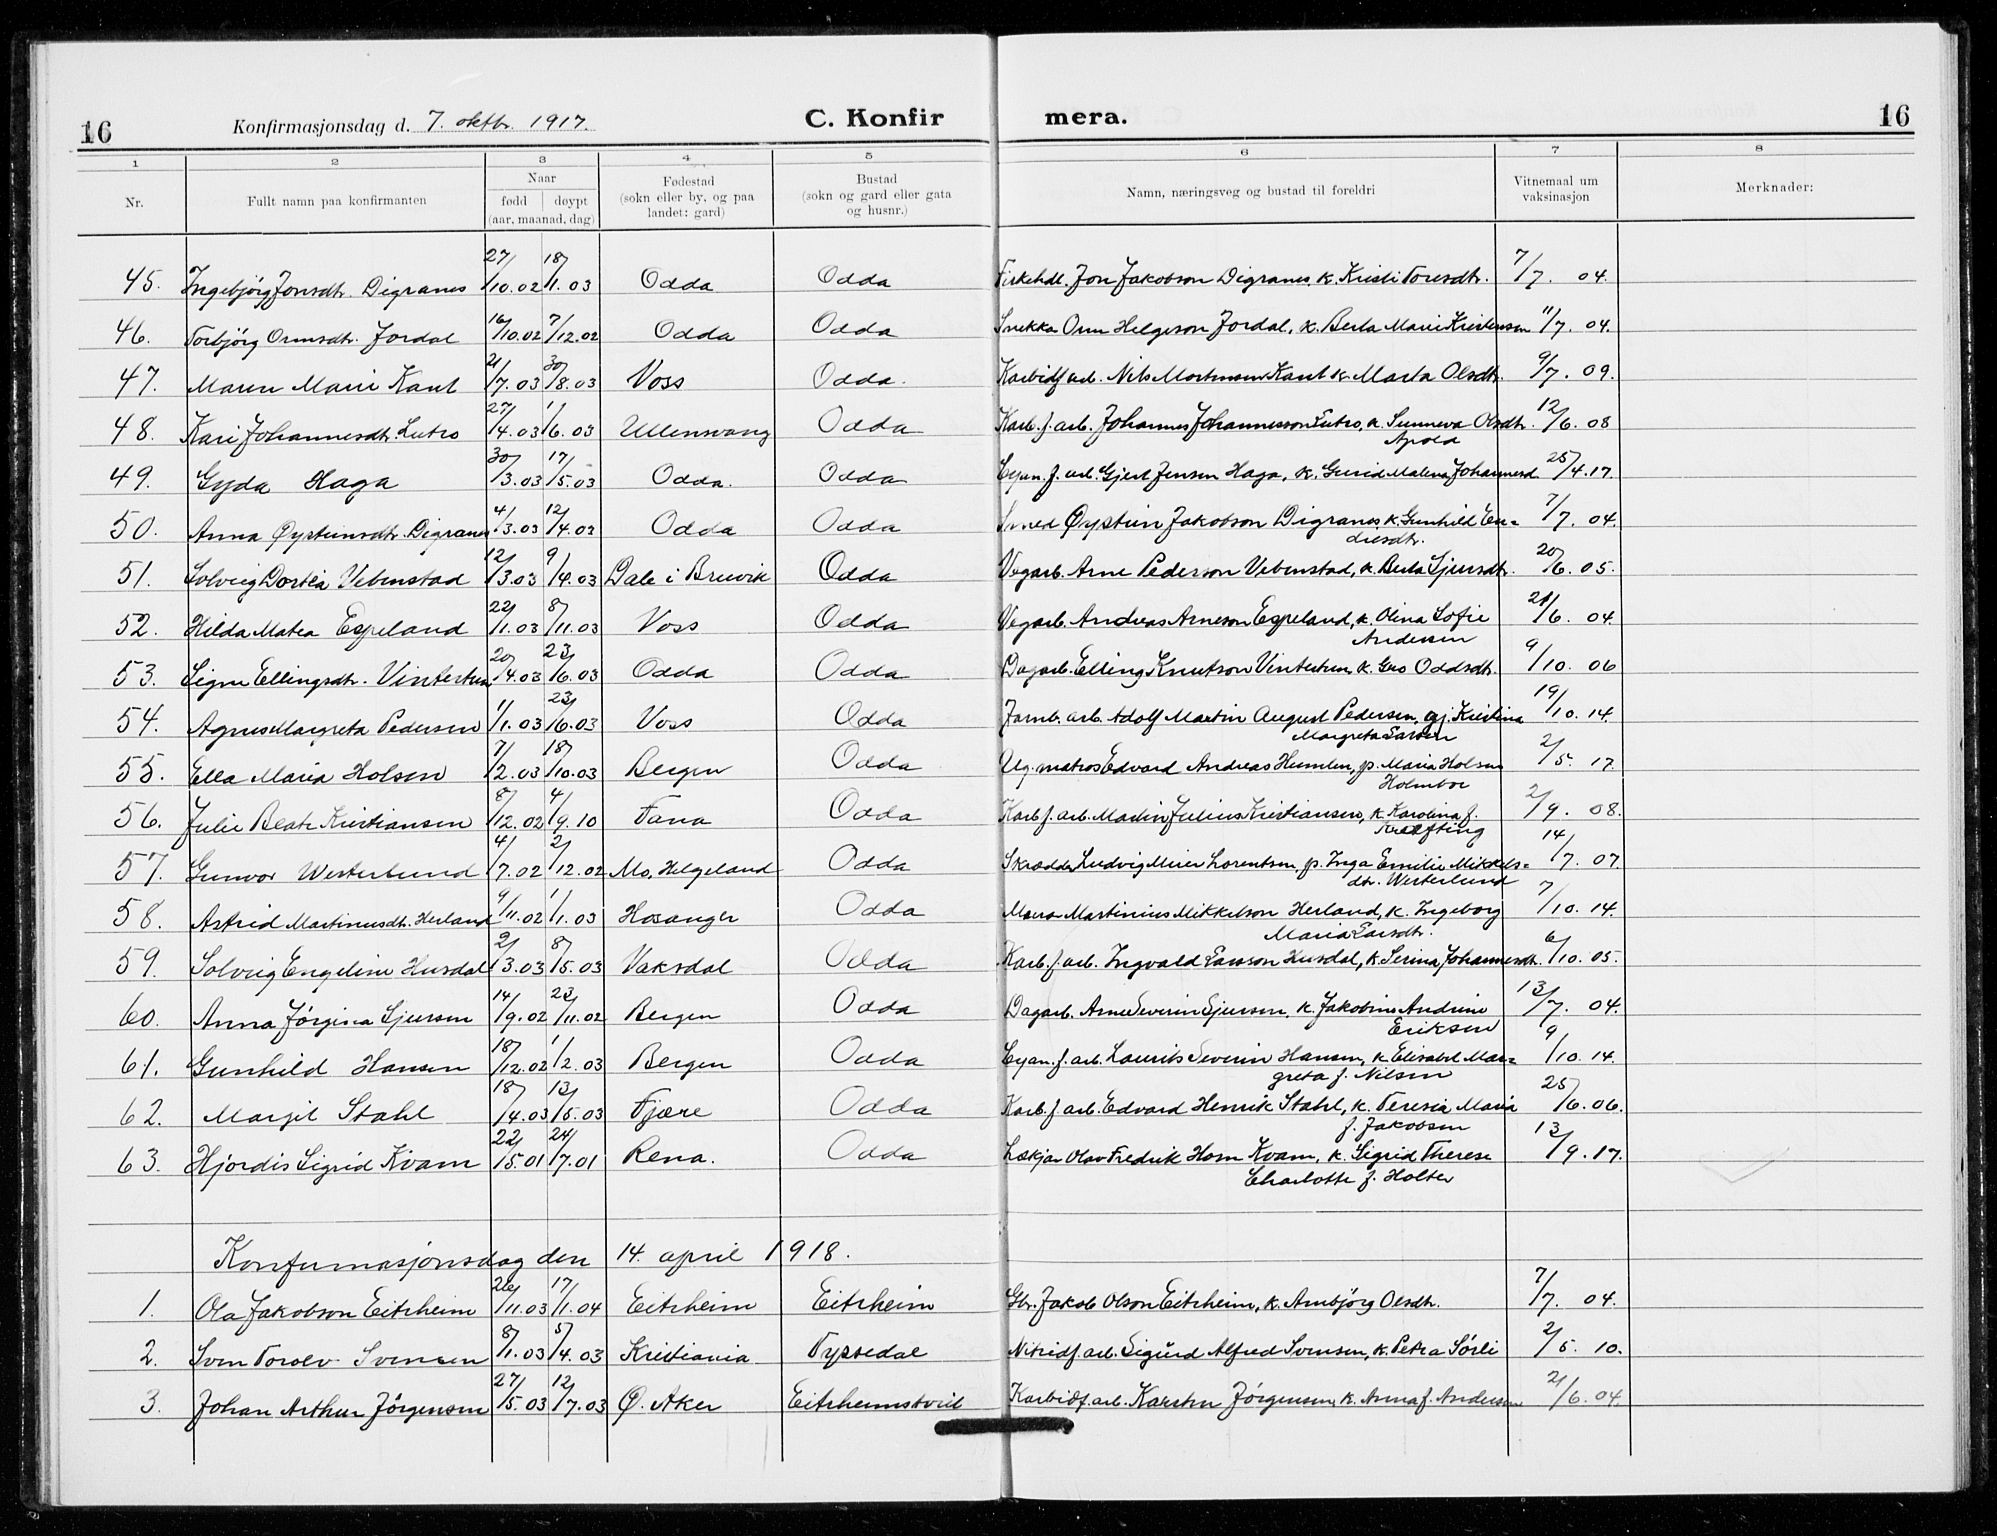 16 Konfirmasjonsdag d. 7. oktbr. 1917. C. Konfir mera. 16
1 2 3 4 5 6 7 8
Nr. Fullt namn paa konfirmanten Naar fødd døypt (aar, maanad, dag) Fødestad (sokn eller by, og paa landet: gard) Bustad (sokn og gard eller gata og husnr.) Namn, næringsveg og bustad til foreldri Vitnemaal um vaksinasjon Merknader:
45. Ingebjörg Jonsdtr. Digranes 27/10.02 18/1.03 Odda Odda Fiskehdl. Jon Jakobson Digranes, k. Kristi Toresdtr. 7/7. 04.
46. Torbjörg Ormsdtr. Jordal 16/10.02 7/12.02 Odda Odda Snekka Orm Helgeson Jordal, k. Berta Marie Kristensen 11/7. 04.
47. Maren Marie Kant 21/7.03 30/8.03 Voss Odda. Karbidf. arb. Nils Mortensen Kant k. Marta Olsdtr. 9/7. 09.
48. Kari Johannesdtr. Lutro 27/4.03 1/6.03 Ullensvang Odda Karb. f. arb. Johannes Johannesson Lutro, k. Sunneva Olsdtr. 12/6. 08
Apold
49. Gyda Haga 30/3.03 17/5.03 Odda. Odda Cyan. f. arb. Gjert Jensen Haga, k. Gurid Malena Johannesd. 25/4.17.
50. Anna Øysteinsdtr. Digranes 4/3.03 12/4.03 Odda Odda Smed Øystein Jakobson Digranes k. Gunhild En= 7/7. 04.
dresdtr.
51. Solveig Dortea Vebenstad 12/3.03 9/4.03 Dale i Bruvik Odda Vegarb. Arne Pederson Vebenstad, k. Berta Sjursdtr. 20/6. 05.
52. Hilda Matea Espeland 22/1.03 8/11.03 Voss Odda Vegarb. Andreas Arneson Espeland, k. Olina Sofie 21/6. 04.
Andersen
53. Signe Ellingsdtr. Vintertun 20/4.03 23/6.03 Odda Odda Dagarb. Elling Knutson Vintertun k. Gro Oddsdtr. 9/10. 06
54. Agnes Margreta Pedersen 1/1.03 23/6.03 Voss Odda Jarnb. arb. Adolf Martin August Pedersen, gj. Kristina 19/10. 14.
Margreta Larsen
55. Ella Maria Holsen 7/2.03 18/10.03 Bergen Odda Ug. matros Edvard Andreas Humlen, p. Maria Holsen 2/5. 17.
Holmboe
56. Julie Beate Kristiansen 8/12.02 4/9.10 Fana Odda Karb. f. arb. Martin Julius Kristiansen, k. Karolina f. 2/9. 08.
Krafting
57. Gunvor Westerlund 4/7.02 2/12.02 Mo, Helgeland Odda Skrædder Ludvig Meier Lorentsen, p. Inga Emilie Mikkels= 14/7. 07.
dtr. Westerlund
58. Astrid Martinusdtr. Herland 9/11.02 1/1.03 Hosanger Odda Martinius Mikkelson Herland, k. Ingeborg 7/10. 14.
Maria Larsdtr.
59. Solveig Engeline Husdal 2/3.03 8/5.03 Vaksdal Odda Karb. f. arb. Ingvald Larsson Husdal, k. Serina Johannesdtr. 6/10. 05.
60. Anna Jörgina Sjursen 14/9.02 23/11.02 Bergen Odda Dagarb. Arne Severin Sjursen, k. Jakobine Andrine 13/7. 04.
Eriksen
61. Gunhild Hansen 18/12.02 1/2.03 Bergen Odda Cyan. f. arb. Laurits Severin Hansen, k. Elisabet Mar= 9/10. 14.
greta f. Nilsen
62. Margit Stahl 18/4.03 13/5.03 Fjære Odda Karb. f. arb. Edvard Henrik Stahl, k. Teresia Maria 25/6. 06.
f. Jakobsen
63. Hjördis Sigrid Kvam 22/5.01 24/7.01 Rena. Odda Lækjar Olav Fredrik Horn Kvam, k. Sigrid Therese 13/9. 17.
Charlotte f. Holter
Konfirmasjonsdag den 14. april 1918.
1. Ola Jakobson Eitrheim 26/11.03 17/1.04 Eitrheim Eitrheim Gbr. Jakob Olson Eitrheim, k. Ambjörg Olsdtr. 7/7. 04.
2. Sven Torolv Svensen 8/1.03 5/4.03 Kristiania Tyssedal Nitridf. arb. Sigurd Alfred Svensen, k. Petra Sörli 2/5. 10.
3. Johan Arthur Jörgensen 27/5.03 12/7.03 Ø. Aker Eitrheimstveit Karbidf. arb. Karsten Jörgensen, k. Anna f. Andersen 21/6. 04.